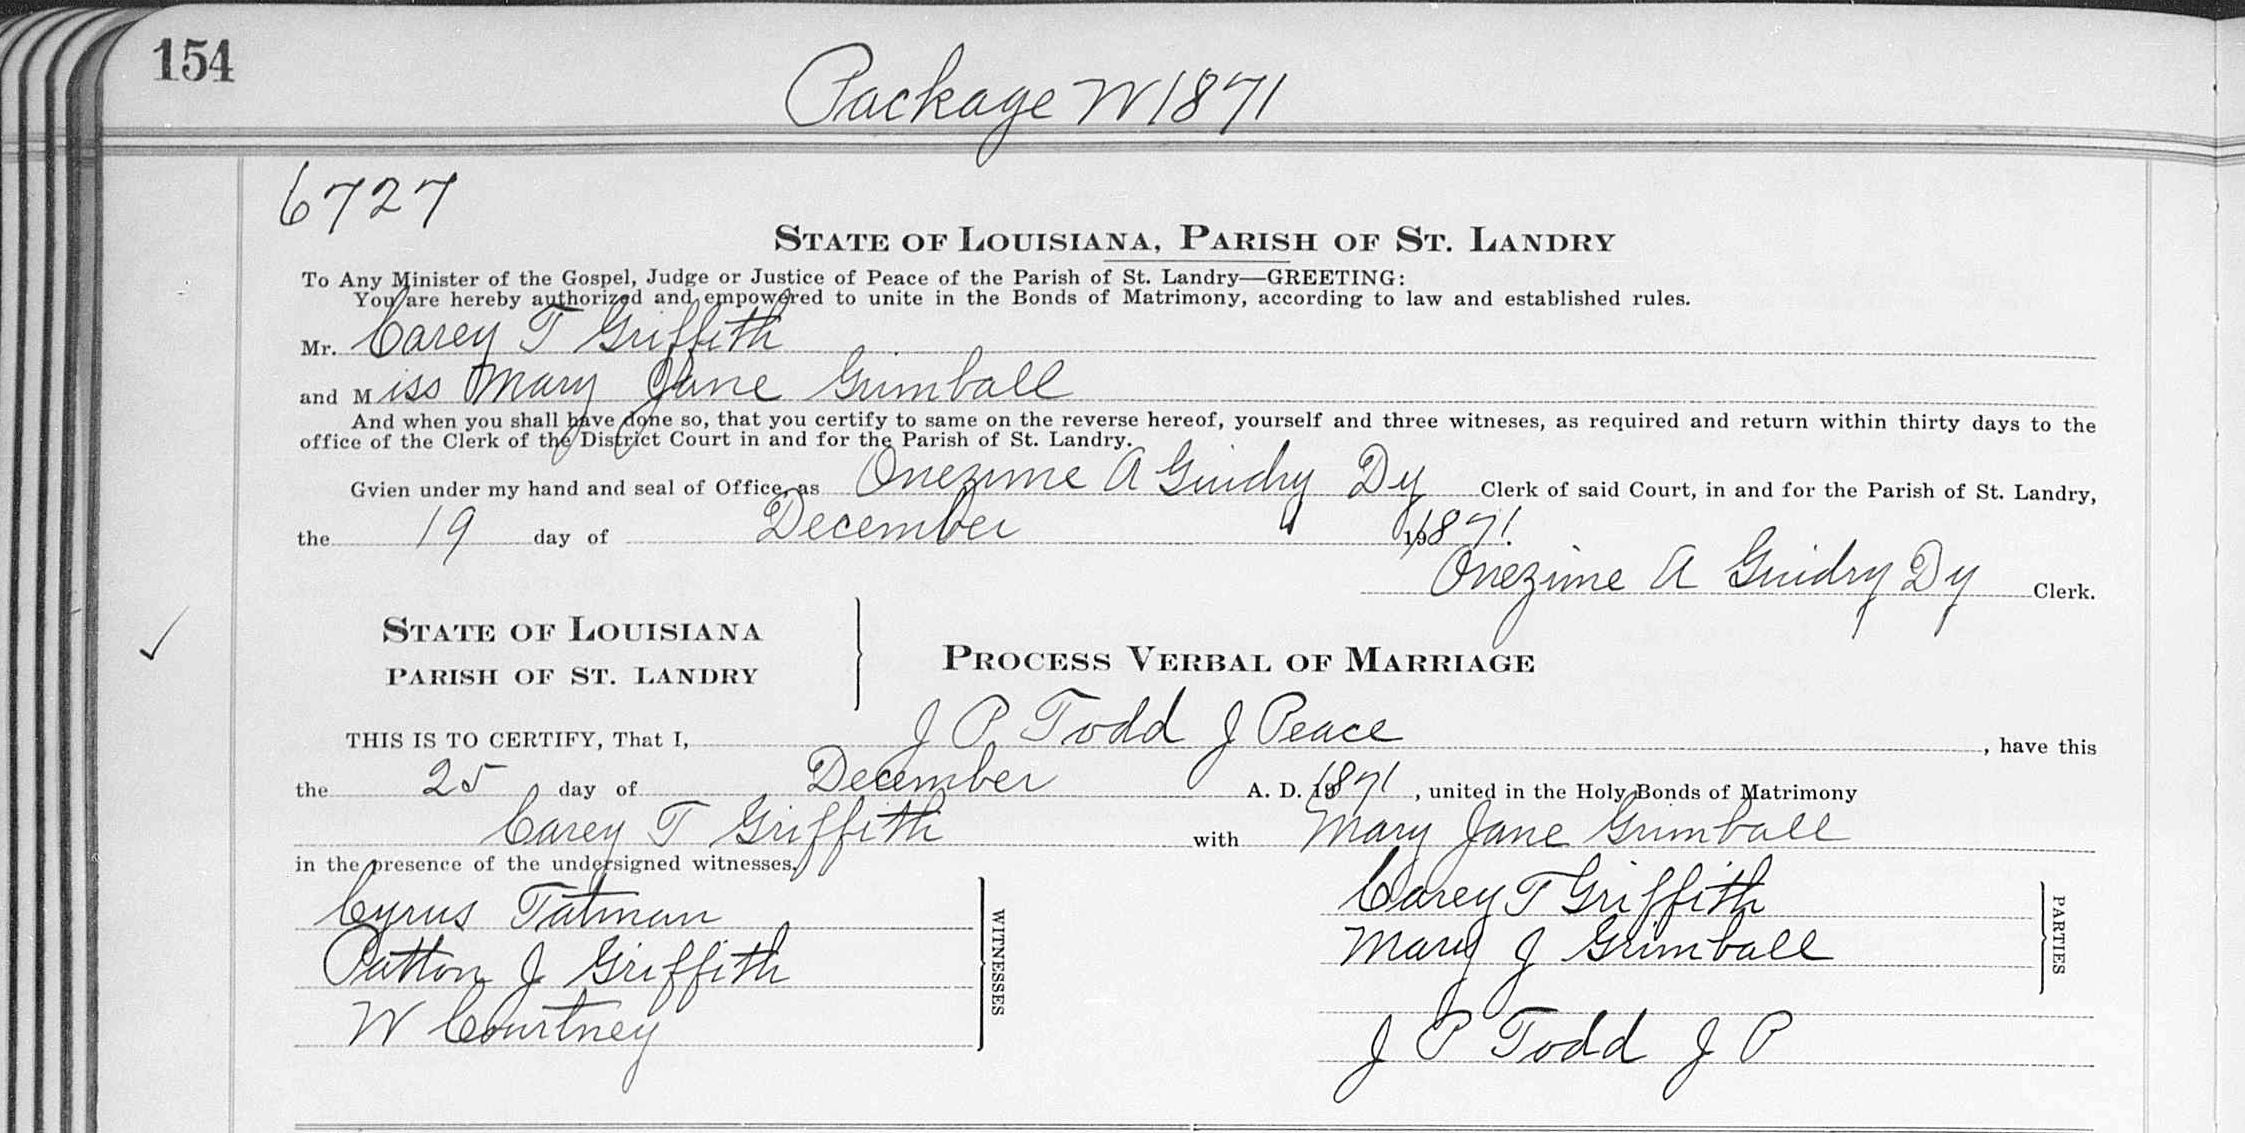 154
Package W 1871
6727
STATE OF LOUISIANA, PARISH OF ST. LANDRY
To Any Minister of the Gospel, Judge or Justice of Peace of the Parish of St. Landry—GREETING:
You are hereby authorized and empowered to unite in the Bonds of Matrimony, according to law and established rules.
Mr. Carey T Griffith
and Miss Mary Jane Grimball
And when you shall have done so, that you certify to same on the reverse hereof, yourself and three witneses, as required and return within thirty days to the
office of the Clerk of the District Court in and for the Parish of St. Landry.
Gvien under my hand and seal of Office, as Onezime A Guidry Dy Clerk of said Court, in and for the Parish of St. Landry,
the 19 day of December 1871.
Onezime A Guidry Dy Clerk.
STATE OF LOUISIANA
PARISH OF ST. LANDRY
PROCESS VERBAL OF MARRIAGE
THIS IS TO CERTIFY, That I, J P Todd J Peace, have this
the 25 day of December A. D. 1871, united in the Holy Bonds of Matrimony
Carey T Griffith with Mary Jane Grimball
in the presence of the undersigned witnesses,
Cyrus Tatman
Patton J Griffith
W Courtney
WITNESSES
Carey T Griffith
Mary J Grimball
PARTIES
J P Todd J P